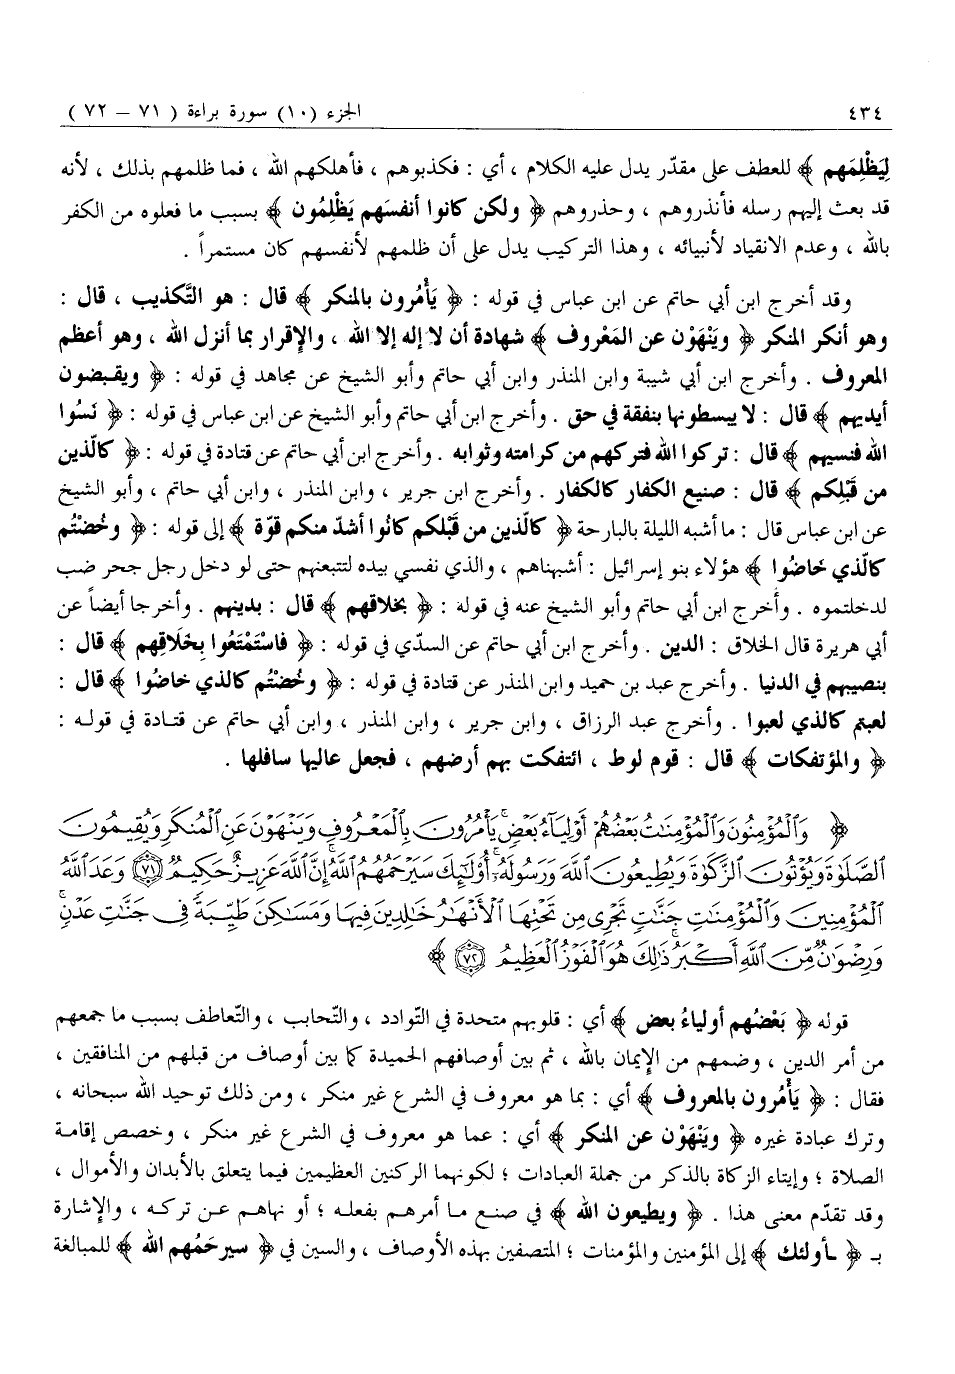 ٤٣٤ الجزء (١٠) سورة براءة ( ٧١ – ٧٢ )
لِيَظْلِمَهم ﴾ للعطف على مقدّر يدل عليه الكلام ، أي : فكذبوهم ، فأهلكهم الله ، فما ظلمهم بذلك ، لأنه
قد بعث إليهم رسله فأنذروهم ، وحذروهم ﴿ ولكن كانوا أنفسَهم يَظْلِمُون ﴾ بسبب ما فعلوه من الكفر
بالله ، وعدم الانقياد لأنبيائه ، وهذا التركيب يدل على أن ظلمهم لأنفسهم كان مستمراً .
وقد أخرج ابن أبي حاتم عن ابن عباس في قوله : ﴿ يَأْمُرون بالمنكر ﴾ قال : هو التَّكذيب ، قال :
وهو أنكر المنكر ﴿ ويَنْهَوْن عن المَعْروف ﴾ شهادة أن لا إله إلا الله ، والإقرار بما أنزل الله ، وهو أعظم
المعروف . وأخرج ابن أبي شيبة وابن المنذر وابن أبي حاتم وأبو الشيخ عن مجاهد في قوله : ﴿ ويقبضون
أيديهم ﴾ قال : لا يبسطونها بنفقة في حق . وأخرج ابن أبي حاتم وأبو الشيخ عن ابن عباس في قوله : ﴿ نَسُوا
الله فنسيهم ﴾ قال : تركوا الله فتركهم من كرامته وثوابه . وأخرج ابن أبي حاتم عن قتادة في قوله : ﴿ كالّذين
من قَبْلِكم ﴾ قال : صنيع الكفار كالكفار . وأخرج ابن جرير ، وابن المنذر ، وابن أبي حاتم ، وأبو الشيخ
عن ابن عباس قال : ما أشبه الليلة بالبارحة ﴿ كالّذين من قَبْلكم كانُوا أشدّ منكم قوّة ﴾ إلى قوله : ﴿ وخُضْتُم
كالّذي خاضُوا ﴾ هؤلاء بنو إسرائيل : أشبهناهم ، والذي نفسي بيده لتتبعنهم حتى لو دخل رجل جحر ضب
لدخلتموه . وأخرج ابن أبي حاتم وأبو الشيخ عنه في قوله : ﴿ بخلاقهم ﴾ قال : بدينهم . وأخرجا أيضاً عن
أبي هريرة قال الخلاق : الدين . وأخرج ابن أبي حاتم عن السدّي في قوله : ﴿ فاسْتَمْتَعُوا بِخَلَاقِهم ﴾ قال :
بنصيبهم في الدنيا . وأخرج عبد بن حميد وابن المنذر عن قتادة في قوله : ﴿ وخُضْتُم كالذي خاضُوا ﴾ قال :
لعبتم كالذي لعبوا . وأخرج عبد الرزاق ، وابن جرير ، وابن المنذر ، وابن أبي حاتم عن قتادة في قوله :
﴿ والمؤتفكات ﴾ قال : قوم لوط ، ائتفكت بهم أرضهم ، فجعل عاليها سافلها .
﴿ وَٱلْمُؤْمِنُونَ وَٱلْمُؤْمِنَٰتُ بَعْضُهُمْ أَوْلِيَآءُ بَعْضٍ ۚ يَأْمُرُونَ بِٱلْمَعْرُوفِ وَيَنْهَوْنَ عَنِ ٱلْمُنكَرِ وَيُقِيمُونَ
ٱلصَّلَوٰةَ وَيُؤْتُونَ ٱلزَّكَوٰةَ وَيُطِيعُونَ ٱللَّهَ وَرَسُولَهُۥٓ ۚ أُو۟لَٰٓئِكَ سَيَرْحَمُهُمُ ٱللَّهُ ۗ إِنَّ ٱللَّهَ عَزِيزٌ حَكِيمٌ ۝٧١ وَعَدَ ٱللَّهُ
ٱلْمُؤْمِنِينَ وَٱلْمُؤْمِنَٰتِ جَنَّٰتٍ تَجْرِى مِن تَحْتِهَا ٱلْأَنْهَٰرُ خَٰلِدِينَ فِيهَا وَمَسَٰكِنَ طَيِّبَةً فِى جَنَّٰتِ عَدْنٍ ۚ
وَرِضْوَٰنٌ مِّنَ ٱللَّهِ أَكْبَرُ ۚ ذَٰلِكَ هُوَ ٱلْفَوْزُ ٱلْعَظِيمُ ۝٧٢ ﴾
قوله ﴿ بَعْضُهم أولياءُ بعض ﴾ أي : قلوبهم متحدة في التّوادد ، والتّحابب ، والتّعاطف بسبب ما جمعهم
من أمر الدين ، وضمهم من الإيمان بالله ، ثم بين أوصافهم الحميدة كما بين أوصاف من قبلهم من المنافقين ،
فقال : ﴿ يَأْمُرون بالمعروف ﴾ أي : بما هو معروف في الشرع غير منكر ، ومن ذلك توحيد الله سبحانه ،
وترك عبادة غيره ﴿ ويَنْهَوْن عن المنكر ﴾ أي : عما هو معروف في الشرع غير منكر ، وخصص إقامة
الصلاة ؛ وإيتاء الزكاة بالذكر من جملة العبادات ؛ لكونهما الركنين العظيمين فيما يتعلق بالأبدان والأموال ،
وقد تقدّم معنى هذا . ﴿ ويطيعون الله ﴾ في صنع ما أمرهم بفعله ؛ أو نهاهم عن تركه ، والإشارة
بـ ﴿ ـأولئك ﴾ إلى المؤمنين والمؤمنات ؛ المتصفين بهذه الأوصاف ، والسين في ﴿ سيرحَمُهم الله ﴾ للمبالغة